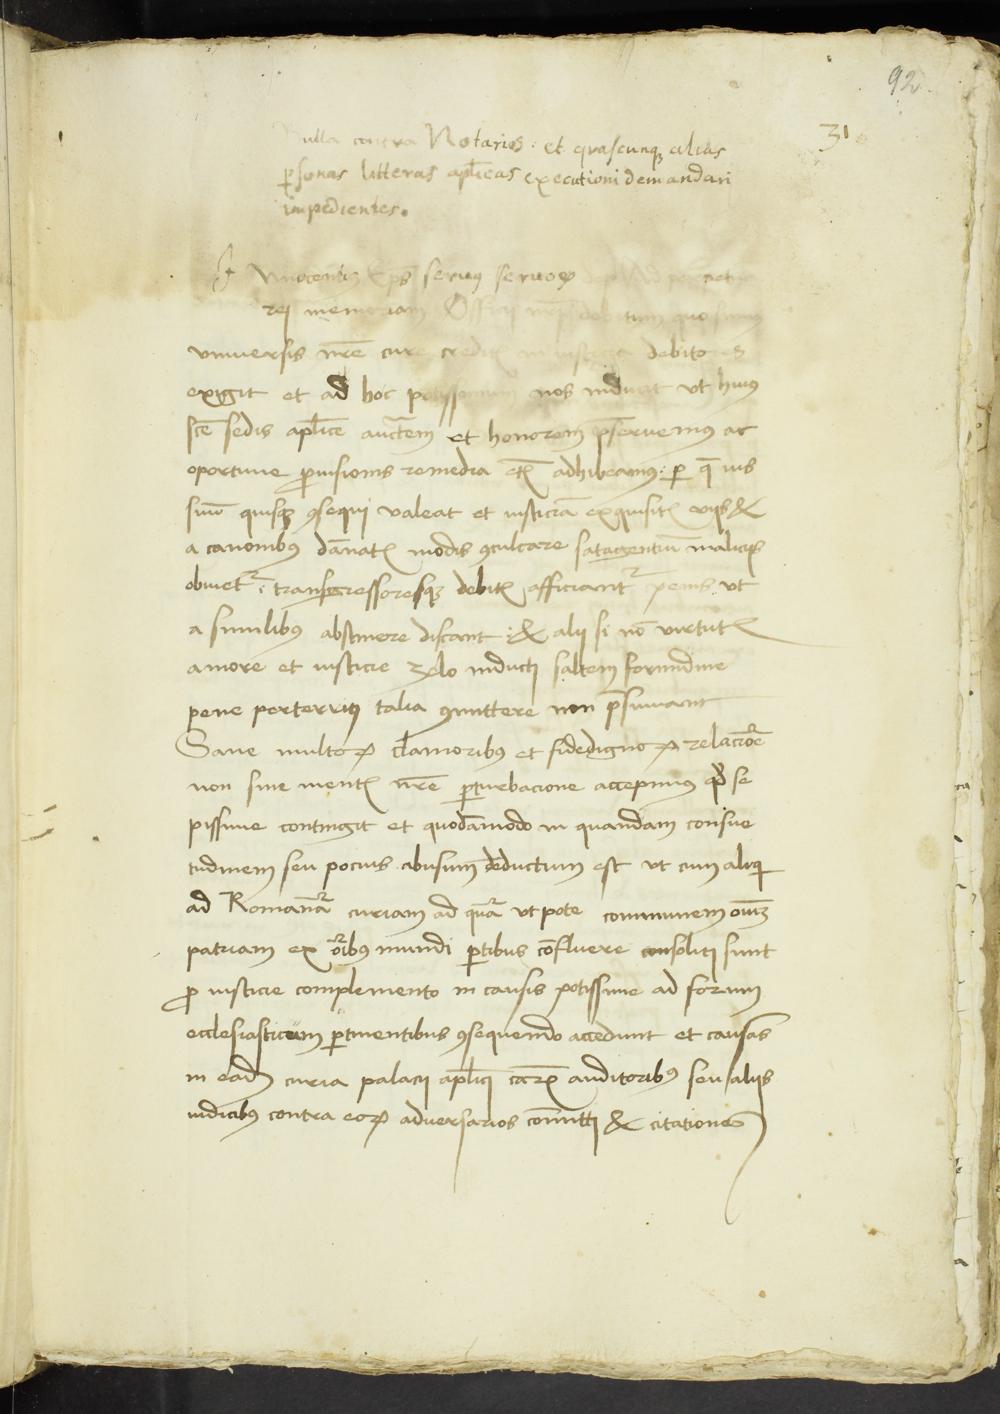 92
31
Bulla contra Notarios: et quascunq alias
psonas litteras aplicas executioni demandari
impedientes.
Innocentius Eps servus servor dei Ad perpetuam
rei memoriam Officii nri debitum quo sumus
universis nre cure creditis in iusticia debitores
exigit et ad hoc potissimum nos inducit ut huius
sce sedis aplice auctem et honorem pservemus ac
oportune provisionis remedia etiam adhibeamus: per que ius
suum quisq consequi valeat et iusticiam exquisitis viis &
a canonibus damnatis modis conculcare satagentium maliciis
obvietur: transgressoresq debitis afficiantur penis ut
a similibus abstinere discant: & alii si non virtutis
amore et iusticie zelo inducti saltem formidine
pene perterriti talia committere non presumant
Sane multor clamoribus et fidedignor relacione
non sine mentis nre perturbacione accepimus quod se
pissime contingit et quodamodo in quandam consue
tudinem seu pocius abusum deductum est ut cum aliqui
ad Romanam curiam ad quam ut pote communem omnium
patriam ex omnibus mundi partibus confluere consoliti sunt
pro iusticie complemento in causis potissime ad forum
ecclesiasticum pertinentibus consequendo accedunt et causas
in eadem curia palacii aplici causarum auditoribus seu aliis
iudicibus contra eor adversarios committi & citationes